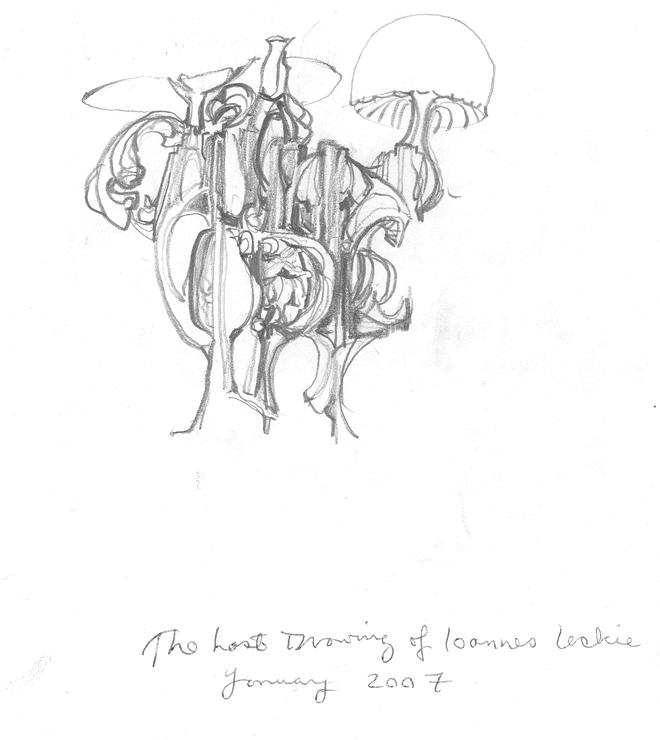 The Last Drawing of Ioannes Leskie
January 2007